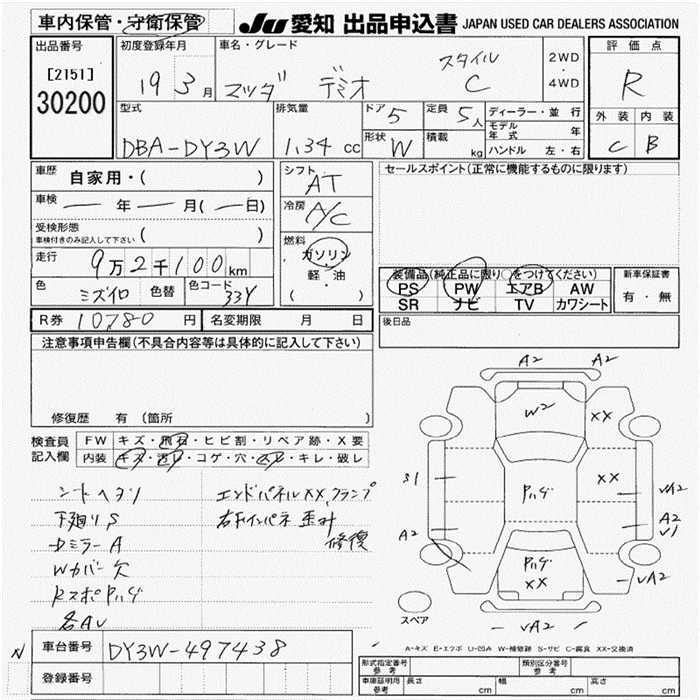 車内保管・守衛保管 JU 愛知 出品申込書 JAPAN USED CAR DEALERS ASSOCIATION
出品番号 初度登録年月 車名・グレード 評価点
[2151]
30200
19 3月 マツダ デミオ スタイル C 2WD・4WD R
型式 排気量 ドア 5 定員 5人 ディーラー・並行 外装 内装
DBA-DY3W 1.34 cc 形状 W 積載 kg モデル年式 年 C B
ハンドル 左・右
車歴 自家用・( )
シフト AT
セールスポイント(正常に機能するものに限ります)
車検 ー年ー月(ー日)
冷房 A/C
受検形態
車検付きのみ記入して下さい ( )
燃料 ガソリン
軽・油
( )
走行 9万2千100km
色 ミズイロ 色替 色コード 33Y
装備品(純正品に限り○をつけてください) 新車保証書
PS PW エアB AW 有・無
SR ナビ TV カワシート
R券 10780円 名変期限 月 日
後日品
注意事項申告欄(不具合内容等は具体的に記入して下さい)
修復歴 有 (箇所
検査員 FW キズ・飛石・ヒビ割・リペア跡・X要
記入欄 内装 キズ・汚レ・コゲ・穴・スレ・キレ・破レ
シートヘタリ エンドパネルXX,クランプ
下廻りS 右下インパネ歪み
Dミラー A 修復
Wカバー欠
RスポPハゲ
各AU
A2 A2
W2 XX
S1 Pハゲ XX VA2
A2 A2
V1
Pハゲ
XX
VA2
スペア
VA2
A-キズ E-エクボ U-凹み W-補修跡 S-サビ C-腐食 XX-交換済
N 車台番号 DY3W-497438
登録番号
形式指定番号 参考 類別区分番号 参考
車庫証明用 参考 長さ cm 幅 cm 高さ cm